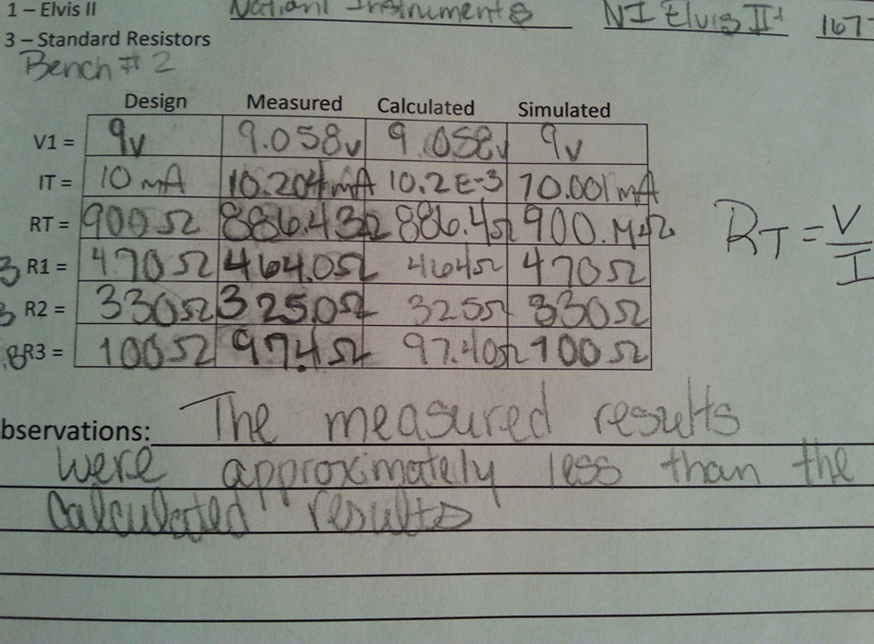 1 – Elvis II National Instruments NI Elvis II+ 167
3 – Standard Resistors
Bench # 2
Design Measured Calculated Simulated
V1 = 9v 9.058v 9.058v 9v
IT = 10 mA 10.204mA 10.2E-3 10.001mA
RT = 900Ω 886.43Ω 886.4Ω 900. RT = V/I
3 R1 = 470Ω 464.0Ω 464Ω 470Ω
3 R2 = 330Ω 325.0Ω 325Ω 330Ω
.8 R3 = 100Ω 97.4Ω 97.40Ω 100Ω
bservations: The measured results
were approximately less than the
calculated results